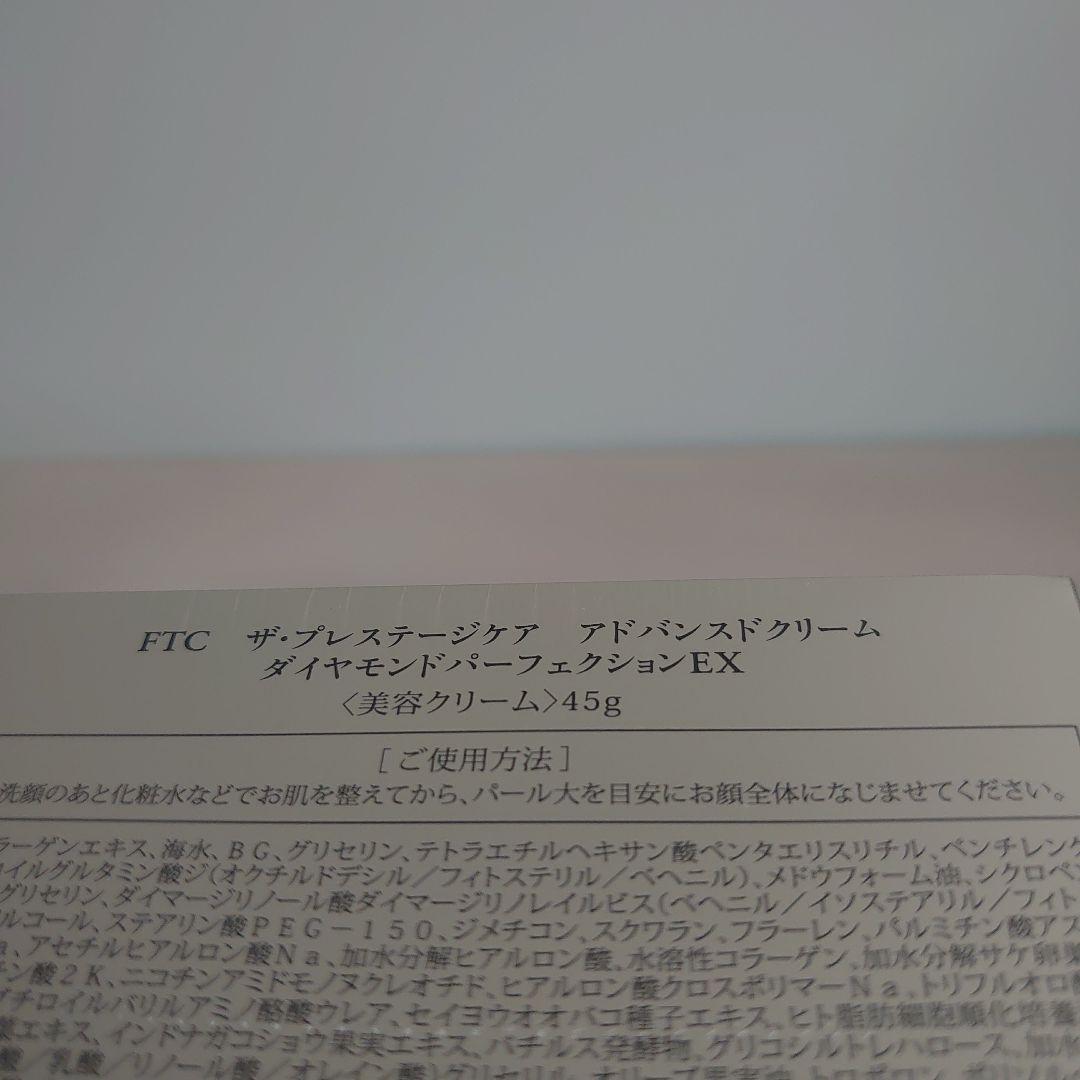 FTC ザ・プレステージケア アドバンスドクリーム
ダイヤモンドパーフェクションEX
〈美容クリーム〉45g
[ご使用方法]
洗顔のあと化粧水などでお肌を整えてから、パール大を目安にお顔全体になじませてください。
ラーゲンエキス、海水、BG、グリセリン、テトラエチルヘキサン酸ペンタエリスリチル、ペンチレング
ロイルグルタミン酸ジ(オクチルドデシル/フィトステリル/ベヘニル)、メドウフォーム油、シクロペン
グリセリン、ダイマージリノール酸ダイマージリノレイルビス(ベヘニル/イソステアリル/フィト
ルコール、ステアリン酸PEG-150、ジメチコン、スクワラン、フラーレン、パルミチン酸アス
a、アセチルヒアルロン酸Na、加水分解ヒアルロン酸、水溶性コラーゲン、加水分解サケ卵巣
チン酸2K、ニコチンアミドモノヌクレオチド、ヒアルロン酸クロスポリマーNa、トリフルオロ酢
プチロイルバリルアミノ酪酸ウレア、セイヨウオオバコ種子エキス、ヒト脂肪細胞順化培養
エキス、インドナガコショウ果実エキス、バチルス発酵物、グリコシルトレハロース、加水
酸/乳酸/リノール酸/オレイン酸)グリセリル、オリーブ果実油、トロポロン